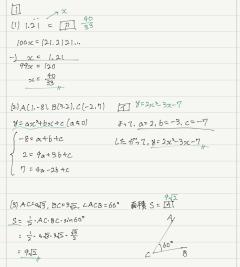 1
(1) 1.2̇1̇ = ア 40/33
x
100x = 121.2121...
-) x = 1.21
99x = 120
x = 40/33
(2) A(1,-8), B(3,2), C(-2,7) イ y=2x²-3x-7
y=ax²+bx+c (a≠0)
よって, a=2, b=-3, c=-7
-8=a+b+c
したがって, y=2x²-3x-7
2=9a+3b+c
7=4a-2b+c
(3) AC=4√3, BC=3√3, ∠ACB=60° 面積 S=
9√3
S=1/2・AC・BC・sin60°
=1/2・4√3・3√3・√3/2
=9√3
A
60°
C B